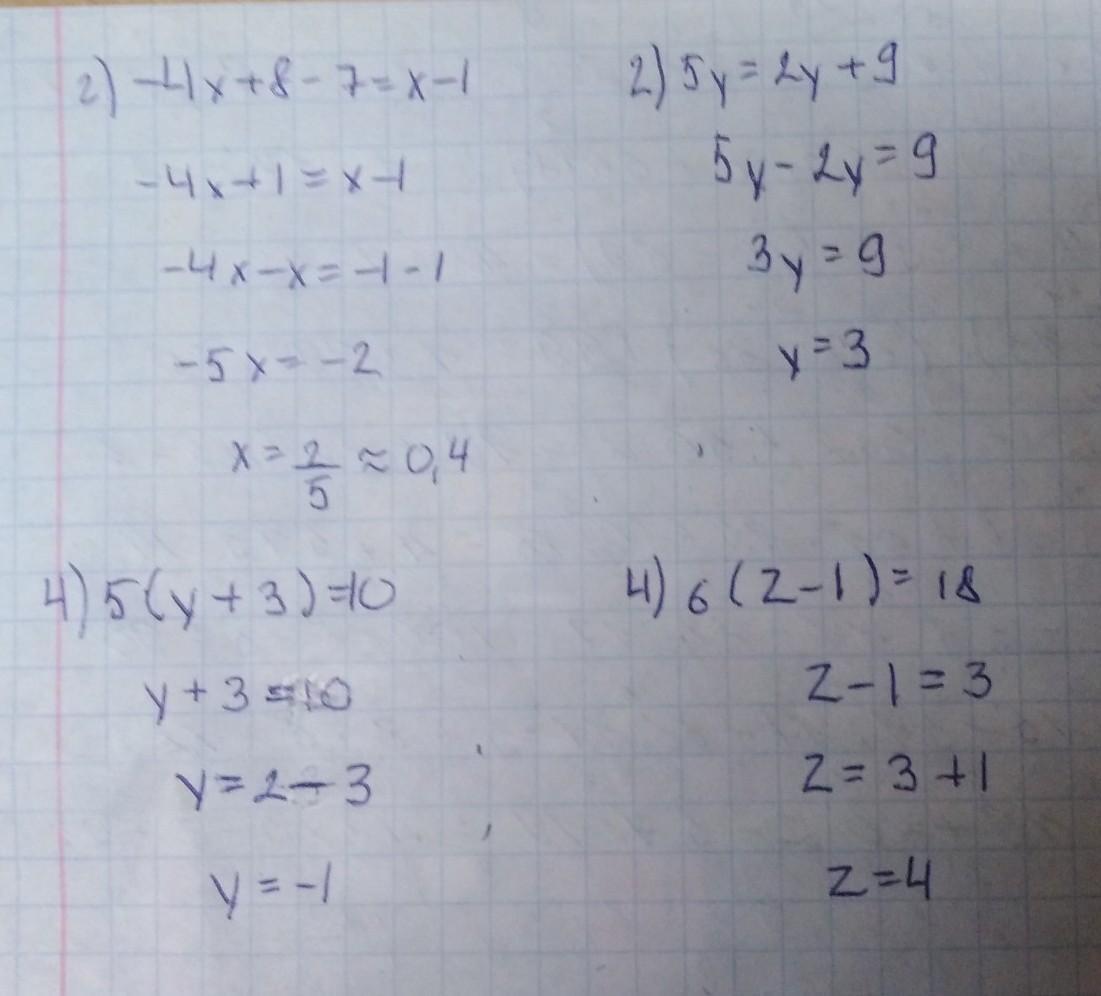 2) -4x+8-7=x-1
-4x+1=x-1
-4x-x=-1-1
-5x=-2
x=2/5≈0,4
2) 5y=2y+9
5y-2y=9
3y=9
y=3
4) 5(y+3)=10
y+3=10
y=2-3
y=-1
4) 6(z-1)=18
z-1=3
z=3+1
z=4